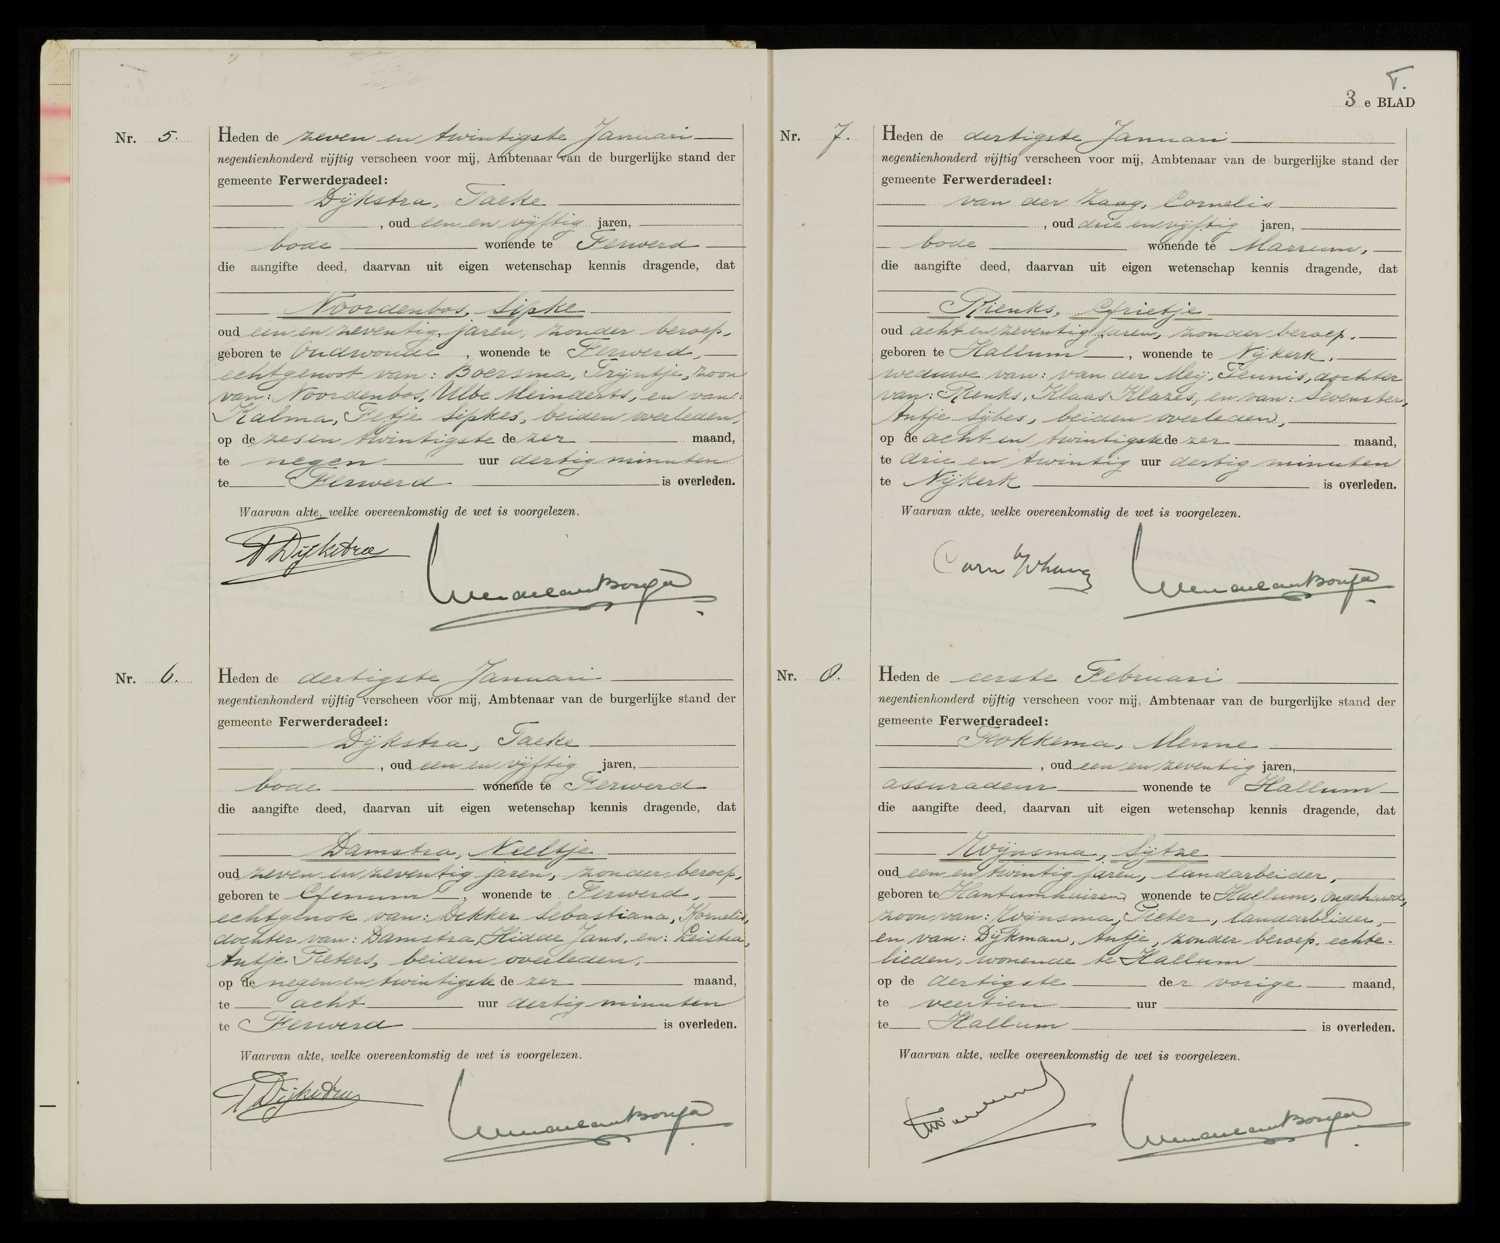 Nr. 5. Heden de zeven en twintigste Januari
negentienhonderd vijftig verscheen voor mij, Ambtenaar van de burgerlijke stand der
gemeente Ferwerderadeel:
Dijkstra, Taeke
, oud een en vijftig jaren,
bode wonende te Ferwerd
die aangifte deed, daarvan uit eigen wetenschap kennis dragende, dat
Noordenbos, Sipke
oud een en zeventig jaren, zonder beroep,
geboren te Oudwoude, wonende te Ferwerd,
echtgenoot van: Boersma, Trijntje, zoon
van: Noordenbos, Ulbe Meinderts, en van:
Kalma, Fetje Sipkes, beiden overleden,
op de zes en twintigste de zer maand,
te negen uur dertig minuten
te Ferwerd is overleden.
Waarvan akte, welke overeenkomstig de wet is voorgelezen.
T Dijkstra
Nr. 6. Heden de dertigste Januari
negentienhonderd vijftig verscheen voor mij, Ambtenaar van de burgerlijke stand der
gemeente Ferwerderadeel:
Dijkstra, Taeke
, oud een en vijftig jaren,
bode wonende te Ferwerd
die aangifte deed, daarvan uit eigen wetenschap kennis dragende, dat
Damstra, Neeltje
oud zeven en zeventig jaren, zonder beroep,
geboren te Genum, wonende te Ferwerd,
echtgenote van: Dekker Sebastiana, Kornelis,
dochter van: Damstra, Hidde Jans, en: Leistra,
Antje Pieters, beiden overleden,
op de negen en twintigste de zer maand,
te acht uur dertig minuten
te Ferwerd is overleden.
Waarvan akte, welke overeenkomstig de wet is voorgelezen.
T Dijkstra
3 e BLAD
Nr. 7. Heden de dertigste Januari
negentienhonderd vijftig verscheen voor mij, Ambtenaar van de burgerlijke stand der
gemeente Ferwerderadeel:
van der Zaag, Cornelis
, oud drie en vijftig jaren,
bode wonende te Marrum,
die aangifte deed, daarvan uit eigen wetenschap kennis dragende, dat
Rienks, Grietje
oud acht en zeventig jaren, zonder beroep,
geboren te Hallum, wonende te Nijkerk,
weduwe van: van der Meij, Teunis, dochter
van: Rienks, Klaas Klazes, en van: Sevenster,
Antje Sijbes, beiden overleden,
op de acht en twintigste de zer maand,
te drie en twintig uur dertig minuten
te Nijkerk is overleden.
Waarvan akte, welke overeenkomstig de wet is voorgelezen.
Nr. 8. Heden de eerste Februari
negentienhonderd vijftig verscheen voor mij, Ambtenaar van de burgerlijke stand der
gemeente Ferwerderadeel:
Fokkema, Menne
, oud een en zeventig jaren,
assuradeur wonende te Hallum
die aangifte deed, daarvan uit eigen wetenschap kennis dragende, dat
Wijnsma, Sijtze
oud een en twintig jaren, landarbeider,
geboren te Hantumhuizen wonende te Hallum, ongehuwd,
zoon van: Wijnsma, Pieter, landarbeider,
en van: Dijkman, Antje, zonder beroep, echte-
lieden, wonende te Hallum
op de dertigste der vorige maand,
te veertien uur
te Hallum is overleden.
Waarvan akte, welke overeenkomstig de wet is voorgelezen.